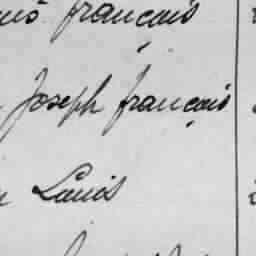 françois
Joseph françois
Louis